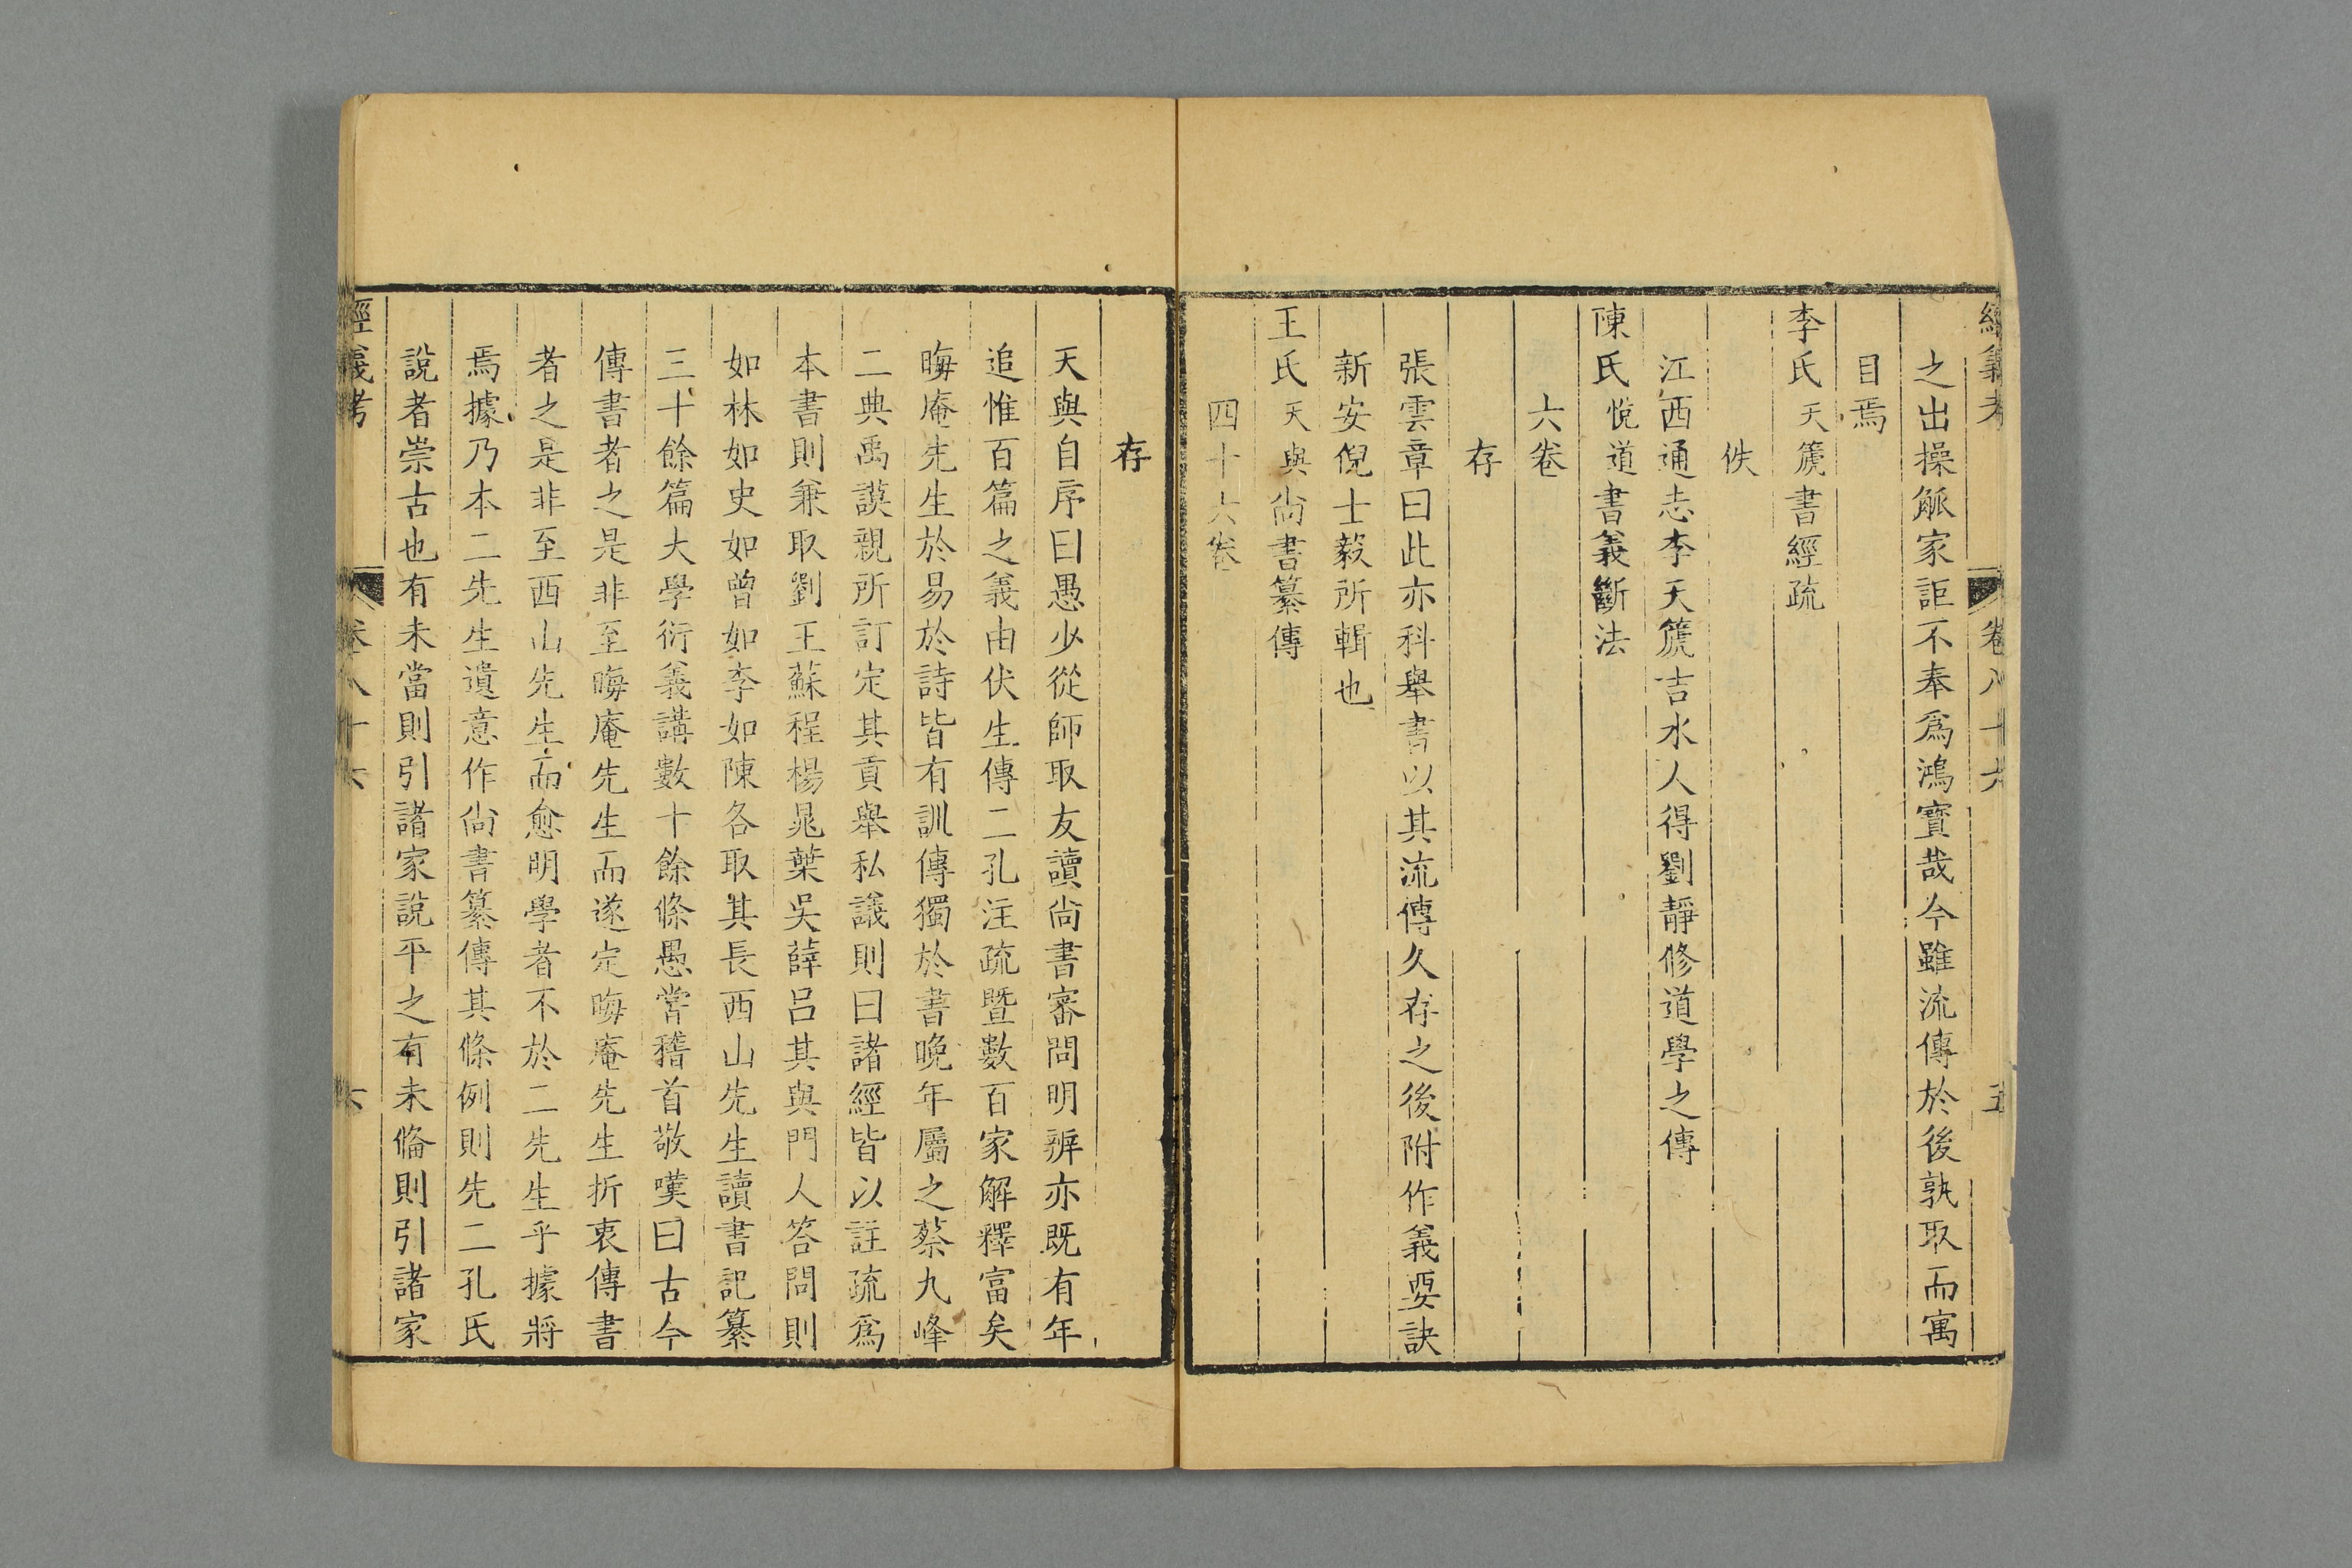 經義考 卷八十六 五
之出操觚家詎不奉爲鴻寳哉今雖流傳於後孰取而寓
目焉
李氏天篪書經疏
佚
江西通志李天篪吉水人得劉靜修道學之傳
陳氏悅道書義斷法
六卷
存
張雲章曰此亦科舉書以其流傳久存之後附作義要訣
新安倪士毅所輯也
王氏天與尚書纂傳
四十六卷
存
天與自序曰愚少從師取友讀尚書審問明辨亦既有年
追惟百篇之義由伏生傳二孔注疏暨數百家解釋富矣
晦庵先生於易於詩皆有訓傳獨於書晚年屬之蔡九峰
二典禹謨親所訂定其貢舉私議則曰諸經皆以註疏爲
本書則兼取劉王蘇程楊晁葉吳薛呂其與門人答問則
如林如史如曾如李如陳各取其長西山先生讀書記纂
三十餘篇大學衍義講數十餘條愚嘗稽首敬嘆曰古今
傳書者之是非至晦庵先生而遂定晦庵先生折衷傳書
者之是非至西山先生而愈明學者不於二先生乎據將
焉據乃本二先生遺意作尚書纂傳其條例則先二孔氏
說者崇古也有未當則引諸家說平之有未備則引諸家
經義考 卷八十六 六